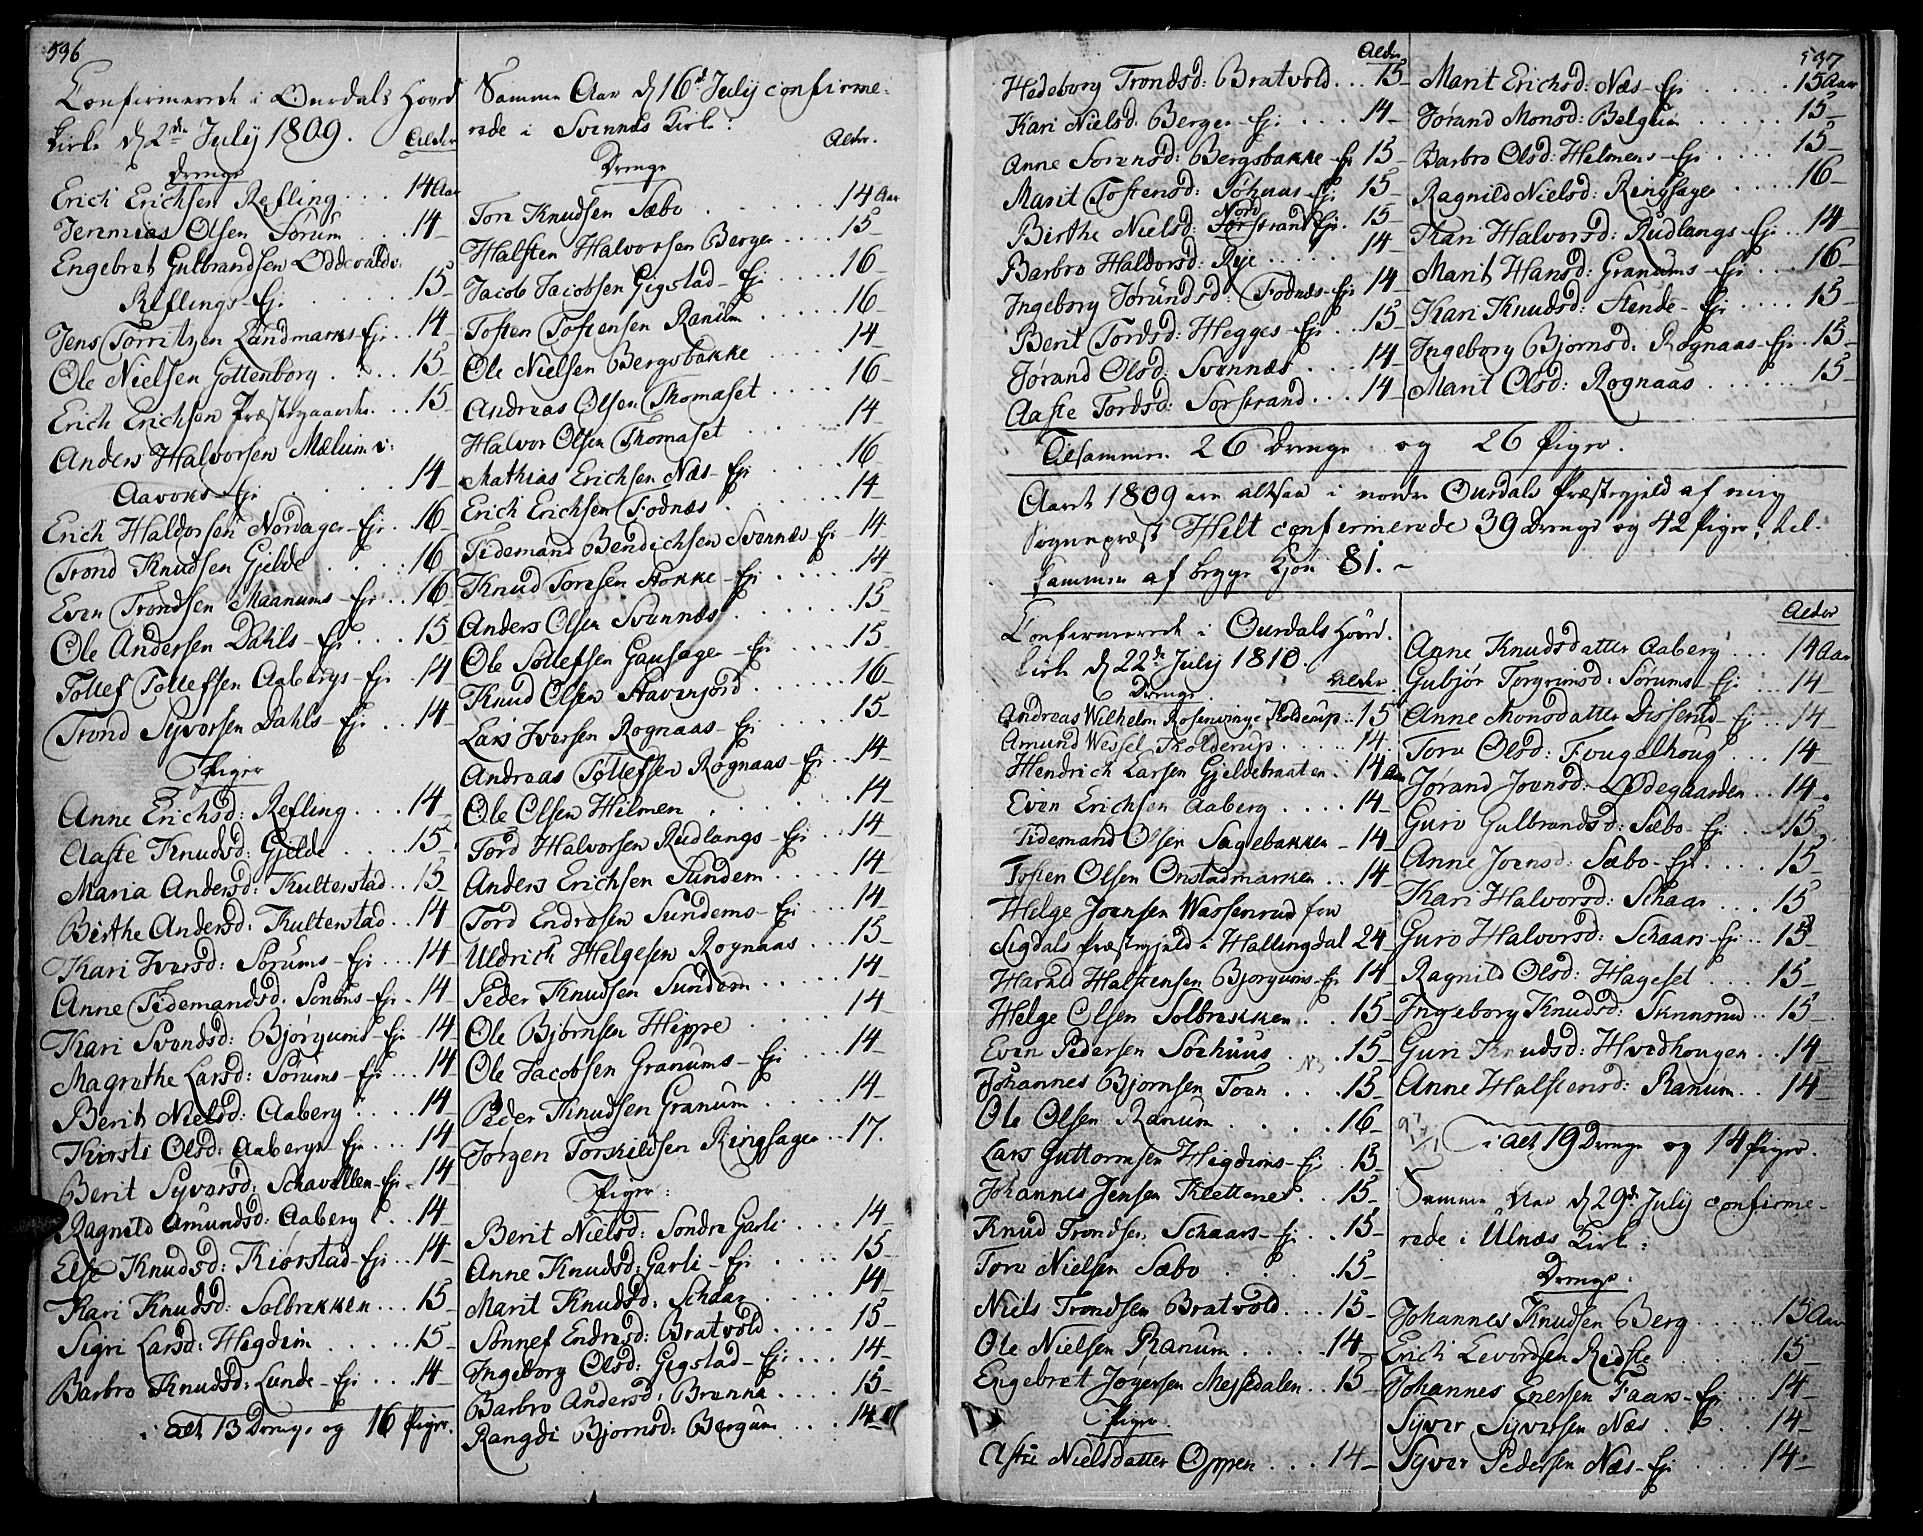 596
Confirmerede i Ourdals Hoved
Kirke d 2de July 1809.
Alder
Drenge
Erich Erichsen Refling . . . 14 Aar
Jeremias Olsen Sørum . . . 14
Engebret Gulbrandsen Oddevolds:
Reflings-Eje . . . 15
Jens Torritzen Landmarks-Eje . . 14
Ole Nielsen Gottenborg . . . 15
Erich Erichsen Præstegaards. . . 15
Anders Halvorsen Mælum v:
Aavors-Eje . . . 14
Erich Haldorsen Nordager-Eje . 16
Trond Knudsen Gjelde . . . 16
Even Trondsen Maanums-Eje . . 16
Ole Andersen Dahls-Eje . . . 15
Tollef Tollefsen Aabergs-Eje . 14
Trond Syversen Dahls-Eje . . 14
Piger
Anne Erichsd: Refling . . . 14
Aaste Knudsd: Gjelde . . . 15
Maria Andersd: Kulterstad . . 15
Birthe Andersd: Kulterstad . . 14
Kari Iversd: Sørums-Eje . . . 14
Anne Tidemandsd: Sørums-Eje . 14
Kari Svendsd: Bjørgums-Eje . 14
Magrethe Larsd: Sørums-Eje . . 14
Berit Nielsd: Aaberg . . . 14
Kirsti Olsd: Aabergs Eje . . . 14
Berit Syversd: Schavellen-Eje . 14
Ragnild Amundsd: Aaberg . . 14
Else Knudsd: Kiørstad-Eje . . 14
Kari Knudsd: Solbrekken . . . 15
Sigri Larsd: Hegdim . . . 15
Barbro Knudsd: Lunde-Eje . . . 14
i alt 13 Drenge og 16 Piger.
Samme Aar d 16de July confirme-
rede i Svennæs Kirke:
Alder.
Drenge
Tore Knudsen Sæbo . . . 14 Aar
Halsten Halvorsen Berge . . . 15
Jacob Jacobsen Gigstad-Eje . . . 16
Tosten Tostensen Ranum . . . 16
Ole Nielsen Bergsbakke . . . 14
Andreas Olsen Thomaset . . . 16
Halvor Olsen Thomaset . . . 14
Mathias Erichsen Næs-Eje . . . 16
Erich Erichsen Fodnæs . . . 14
Tidemand Bendichsen Svennæs Eje - 14
Knud Toresen Stokke-Eje . . . 14
Anders Olsen Svennæs . . . 15
Ole Tollefsen Gausager-Eje . . . 15
Knud Olsen Stavenjord . . . 16
Lars Iversen Rognaas-Eje . . . 15
Andreas Tollefsen Rognaas-Eje . 14
Ole Olsen Hilmen . . . 14
Tord Halvorsen Rudlangs-Eje . . 14
Anders Erichsen Sundem . . . 14
Tord Endresen Sundems-Eje . . . 14
Uldrich Helgesen Rognaas . . . 15
Peder Knudsen Sundem . . . 14
Ole Bjørnsen Hippe . . . 14
Ole Jacobsen Granums-Eje . . . 14
Peder Knudsen Granum . . . 14
Jørgen Torkildsen Ringsager . . . 17.
Piger:
Berit Nielsd: Søndre Garli . . . 14
Anne Knudsd: Garli-Eje . . . 15
Marit Knudsd: Schaar . . . 14
Sønnef Endresd: Bratvold . . . 15
Ingeborg Olsd: Gigstad-Eje . . . 14
Barbro Andersd: Brenna . . . 15
Rangdi Bjørnsd: Bergum . . . 14
Alder
Hedeborg Trondsd: Bratvold . . . 15
Kari Nielsd: Berge-Eje . . . 14
Anne Sørensd: Bergsbakke-Eje 15
Marit Tostensd: Søhuus-Eje 15
Birthe Nielsd: Nord Sørstrand Eje . 15
Barbro Haldorsd: Rye . . . 14
Ingeborg Jørundsd: Fodnæs-Eje 14
Berit Tordsd: Hegges-Eje . . 15
Jørand Olsd: Svennæs . . . 14
Aaste Tordsd: Sørstrand . . . 14
597
Marit Erichsd: Næs-Eje . . . 15 Aar
Jørand Monsd: Belgum . . . 15
Barbro Olsd: Helmens-Eje . . . 15
Ragnild Nielsd: Ringsager . . . 16
Kari Halvorsd: Rudlangs-Eje . . 14
Marit Hansd: Granums-Eje . . . 16
Kari Knudsd: Stende-Eje . . . 15
Ingeborg Bjørnsd: Rognaas-Eje . 15
Marit Olsd: Rognaas . . . 15
Tilsammen 26 Drenge og 26 Piger.
Aaret 1809 ere altsaa i nordre Ourdals Præstegjeld af mig
Sognepræst Helt confirmerede 39 Drenge og 42 Piger, til-
sammen af begge Kjøn 81.-
Confirmerede i Ourdals Hoved.
kirke d 22de July 1810.
Drenge
Alder
Andreas Wilhelm Rosenvinge Tholderup . . 15
Amund Wessel Tholderup . . . 14
Hendrich Larsen Gjeldebraaten . 14 Aar
Even Erichsen Aaberg . . . 14
Tidemand Olsen Sagebakken - 14
Tosten Olsen Onstadmarken . . 14
Helge Joensen Wassenrud fra
Sigdals Præstegjeld i Hallingdal 24
Harald Halstensen Bjørgums-Eje 14
Helge Olsen Solbrekken . . 15
Even Pedersen Søehuus . . . 15
Johannes Bjørnsen Toen . . . 15
Ole Olsen Ranum . . . 16
Lars Guttormsen Higdims-Eje . 15
Johannes Jensen Klettenes . . 15
Knud Trondsen Schaars-Eje . . 15
Tore Nielsen Sæbo . . . 15
Niels Trondsen Bratvold . . . 15
Ole Nielsen Ranum . . . 14
Engebret Jøgersen Mejsedalen . . 15
Piger
Astri Nielsdatter Oppen . . . 14
Alder
Anne Knudsdatter Aaberg . . . 14 Aar
Gubjør Torgrimsd: Sørums-Eje . . . 14
Anne Monsdatter Disserud-Eje . . 14
Tore Olsd: Fougelhoug . . . 14
Jørand Joensd: Ødegaarden . . 14
Guro Gulbrandsd: Sæbo-Eje . . 15
Anne Joensd: Sæbo-Eje . . . 15
Kari Halvorsd: Schaar . . . 15
Guro Halvorsd: Schaars-Eje . . 15
Ragnild Olsd: Hageset . . . 15
Ingeborg Knudsd: Skrinsrud . . 15
Guri Knudsd: Hvedhougen . . 14
Anne Halstensd: Ranum . . 14
i alt 19 Drenge og 14 Piger.
Samme Aar d 29de July confirme-
rede i Ulnæs Kirke:
Drenge:
Johannes Knudsen Berg . . . 15 Aar
Erich Levordsen Redste . . . 15
Johannes Enersen Faars-Eje . . 14
Syver Syversen Næs . . . 14
Syver Pedersen Næs-Eje . . . 14